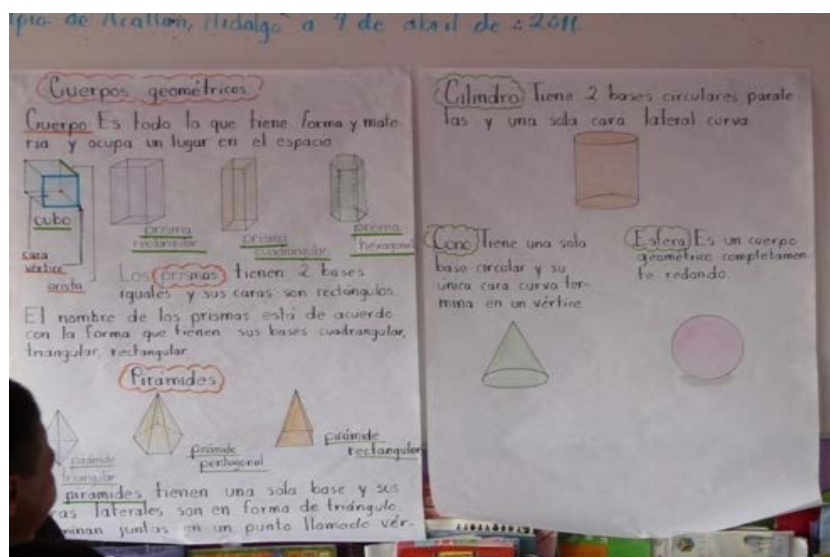 pio de Acatlán, Hidalgo a 4 de abril de 2011
Cuerpos geométricos
Cuerpo Es todo lo que tiene forma y mate-
ria y ocupa un lugar en el espacio
cubo
prisma
rectangular
prisma
cuadrangular
prisma
hexagonal
cara
vértice
arista
Los prismas tienen 2 bases
iguales y sus caras son rectángulos.
El nombre de los prismas está de acuerdo
con la forma que tienen sus bases cuadrangular,
triangular, rectangular
Pirámides
pirámide
triangular
pirámide
pentagonal
pirámide
rectangular
piramides tienen una sola base y sus
ras laterales son en forma de triángulo.
minan juntas en un punto llamado vér-
Cilindro Tiene 2 bases circulares parale-
las y una sola cara lateral curva
Cono Tiene una sola
base circular y su
única cara curva ter-
mina en un vértice
Esfera Es un cuerpo
geométrico completamen-
te redondo.